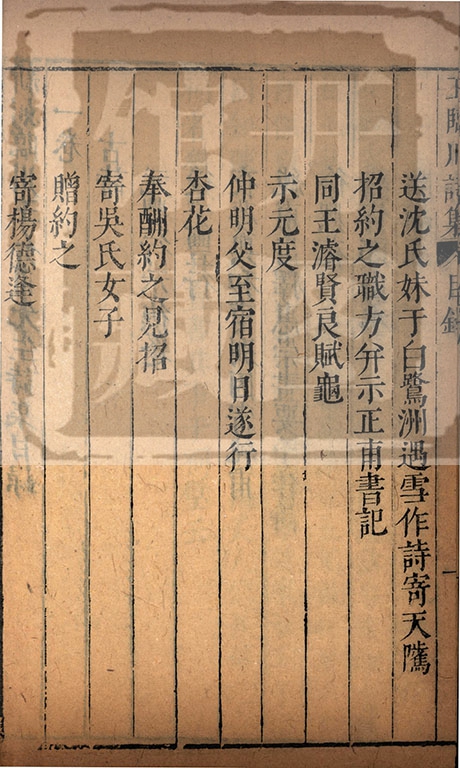 王臨川詩集 目錄
送沈氏妹于白鷺洲遇雪作詩寄天隲
招約之職方并示正甫書記
同王濬賢良賦龜
示元度
仲明父至宿明日遂行
杏花
奉酬約之見招
寄吳氏女子
贈約之
寄楊德逢